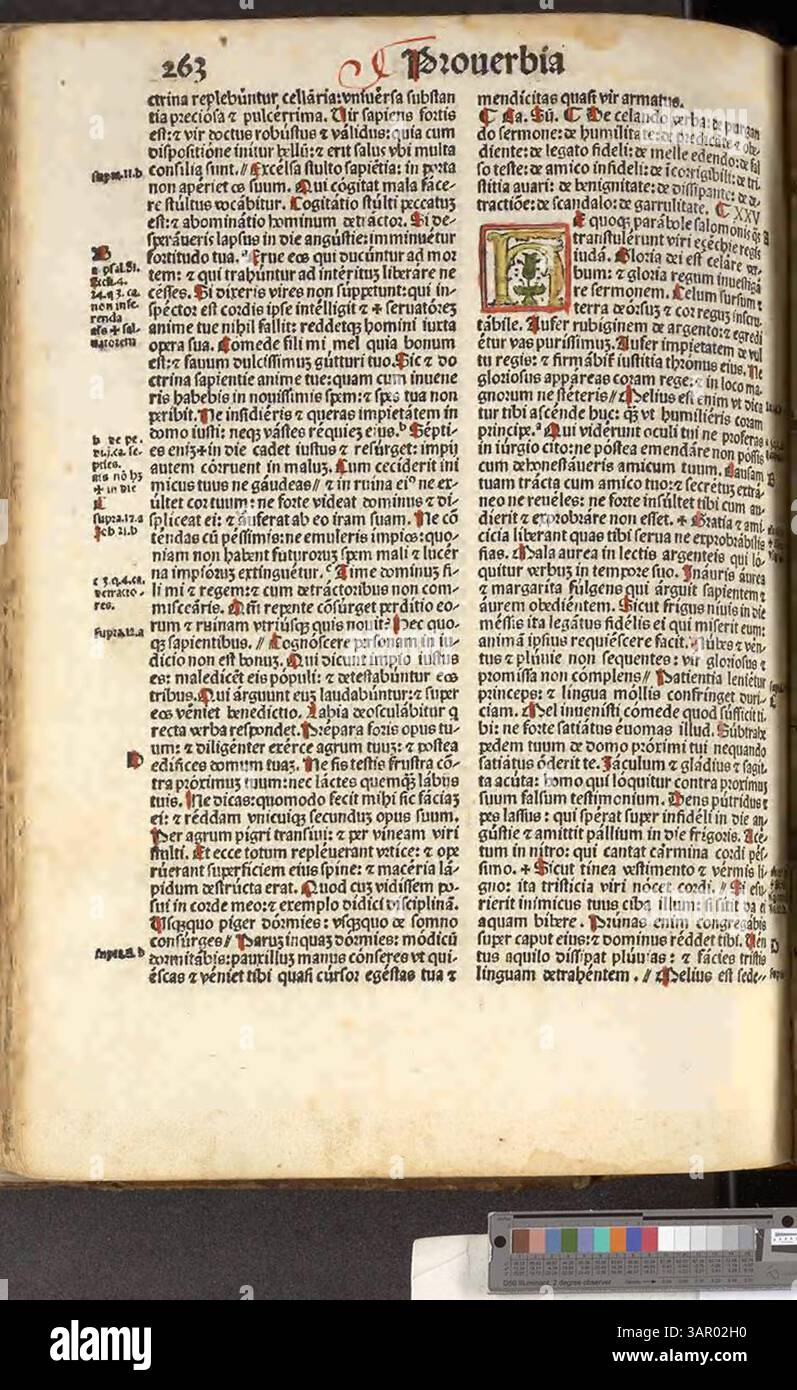 263
Prouerbia
ctrina replebũntur cellãria: vniuersa substan
tia preciosa ⁊ pulcerrima. Vir sapiens fortis
est: ⁊ vir doctus robústus ⁊ válidus: quia cum
dispositióne initur bellũ: ⁊ erit salus vbi multa
consilia sunt. // Excélsa stulto sapiẽtia: in porta
non apériet os suum. Qui cógitat mala fáce-
re stúltus vocábitur. Cogitatio stúlti peccatuꝫ
est: ⁊ abominátio hominum detráctor. Si de-
speráueris lapsus in die angústie: imminuétur
fortitudo tua. ᵃ Erue eos qui ducúntur ad mor
tem: ⁊ qui trahúntur ad intéritũ liberáre ne
césses. Si dixeris vires non súppetunt: qui in-
spéctor est cordis ipse intélligit ⁊ ✚ seruatóreꝫ
anime tue nihil fallit: reddetqꝫ homini iuxta
opera sua. Cómede fili mi mel quia bonum
est: ⁊ fauum dulcíssimuꝫ gútturi tuo. Sic ⁊ do
ctrina sapientie anime tue: quam cum inuene
ris habebis in nouíssimis spem: ⁊ spes tua non
peribit. Ne insidiéris ⁊ queras impietátem in
domo iusti: neqꝫ vástes réquieꝫ eius. ᵇ Sépti-
es eniꝫ ✚ in die cadet iustus ⁊ resúrget: impij
autem córruent in maluꝫ. Cum ceciderit ini
micus tuus ne gáudeas // ⁊ in ruina eiꝰ ne ex-
últet cor tuum: ne forte videat dominus ⁊ di-
spliceat ei: ⁊ áuferat ab eo iram suam. Ne cõ
téndas cũ péssimis: ne emuleris impios: quo-
niam non habent futuroruꝫ spem mali ⁊ lucér
na impioruꝫ extinguétur. ᶜ Time dominuꝫ fi-
li mi ⁊ regem: ⁊ cum detractoribus non com-
misceáris. Qm̃ repente cõsúrget perditio eo-
rum ⁊ ruinam vtriúsqꝫ quis nouit? Hec quo-
qꝫ sapientibus. // Cognóscere personam in iu-
dicio non est bonuꝫ. Qui dicunt impio iustus
es: maledícẽt eis pópuli: ⁊ detestabúntur eos
tribus. Qui árguunt euꝫ laudabúntur: ⁊ super
eos véniet benedictio. Labia deosculábitur q̃
recta verba respondet. Prépara foris opus tu-
um: ⁊ diligénter exérce agrum tuuꝫ: ⁊ postea
edífices domum tuaꝫ. Ne sis testis frustra cõ-
tra próximuꝫ tuum: nec láctes quemqꝫ lábijs
tuis. Ne dicas: quomodo fecit mihi sic fáciaꝫ
ei: ⁊ reddam vnicuiqꝫ secunduꝫ opus suum.
Per agrum pigri transíui: ⁊ per vineam viri
stulti. Et ecce totum repléuerant vrtice: ⁊ ope
rúerant superfíciem eius spine: ⁊ macéria lá-
pidum destrúcta erat. Quod cuꝫ vidissem po-
sui in corde meo: ⁊ exemplo dídici disciplinã.
Usqꝫquo piger dórmies: vsqꝫquo de somno
consúrges // Paruꝫ inquaꝫ dórmies: módicũ
dormitábis: pauxílluꝫ manus cónseres vt qui-
éscas ⁊ véniet tibi quasi cúrsor egéstas tua ⁊
mendícitas quasi vir armatus.
do sermone: de humilitate: de predicate ⁊ obe-
diente: de legato fideli: de melle edendo: de fal
so teste: de amico infideli: de ĩcorrigibili: de tri
stitia auari: de benignitate: de dissipante: de de-
tractiõe: de scandalo: de garrulitate. XXV
H
E quoqꝫ parábole salomonis q̃s
transtulérunt viri ezéchie regis
iudá. Glória dei est celáre ver-
bum: ⁊ glória regum inuestigá
re sermonem. Celum sursum ⁊
terra deórsuꝫ ⁊ cor reguꝫ inscru
tábile. Aufer rubíginem de argento: ⁊ egredi
étur vas puríssimuꝫ. Aufer impietátem de vul
tu regis: ⁊ firmábit̃ iustitia thronus eius. Ne
gloriosus appáreas coram rege: ⁊ in loco ma-
gnorum ne stéteris // Melius est enim vt dica
tur tibi ascénde huc: q̃ꝫ vt humiliéris coram
príncipe. ᵃ Qui vidérunt oculi tui ne proferas
in iúrgio cito: ne póstea emendáre non possis
cum dehonestáueris amicum tuum. Causam
tuam trácta cum amico tuo: ⁊ secrétuꝫ extrá-
neo ne reuéles: ne forte insúltet tibi cum au-
dierit ⁊ exprobráre non cesset. ✚ Gratia ⁊ ami-
cicia liberant quas tibi serua ne exprobrábilis
fias. Mala aurea in lectis argenteis qui ló-
quitur verbuꝫ in tempore suo. Inauris áurea
⁊ margarita fúlgens qui árguit sapientem ⁊
áurem obediéntem. Sicut frigus niuis in die
méssis ita legátus fidélis ei qui miserit eum:
animã ipsius requiéscere facit. Nubes ⁊ ven-
tus ⁊ plúuie non sequentes: vir gloriosus ⁊
promissa non complens // Patientia leniétur
princeps: ⁊ lingua móllis confringet duri-
ciam. Mel inuenísti cómede quod súfficit ti-
bi: ne forte satiátus éuomas illud. Súbtrahe
pedem tuum de domo próximi tui nequando
satiátus óderit te. Jáculum ⁊ gládius ⁊ sagit-
ta acúta: homo qui lóquitur contra proximuꝫ
suum falsum testimonium. Dens pútridus ⁊
pes lassus: qui spérat super infidéli in die an-
gústie ⁊ amíttit pállium in die frigoris. Acé-
tum in nitro: qui cantat cármina cordi pés-
simo. ✚ Sicut tínea vestimento ⁊ vérmis li-
gno: ita tristicia viri nócet cordi. // Si esu-
rierit inimicus tuus ciba illum: si sitit da ei
aquam bibere. Prúnas enim congregábis
super caput eius: ⁊ dominus réddet tibi. Uén
tus aquilo dissipat plúuias: ⁊ fácies tristis
linguam detrahéntem. // Melius est sede-
supra.11.b
B
a psal.81.
24.q.3.ca.
non infe-
renda
als ✚ sal-
uatorem
b de pe.
✚ in die
C
supra.17.a
Job 21.b
c 3.q.4.ca.
detracto-
res.
supra.12.a
D
supra.6.b
D50 Illuminant, 2 degree observer
alamy
Image ID: 3AR02H0
www.alamy.com